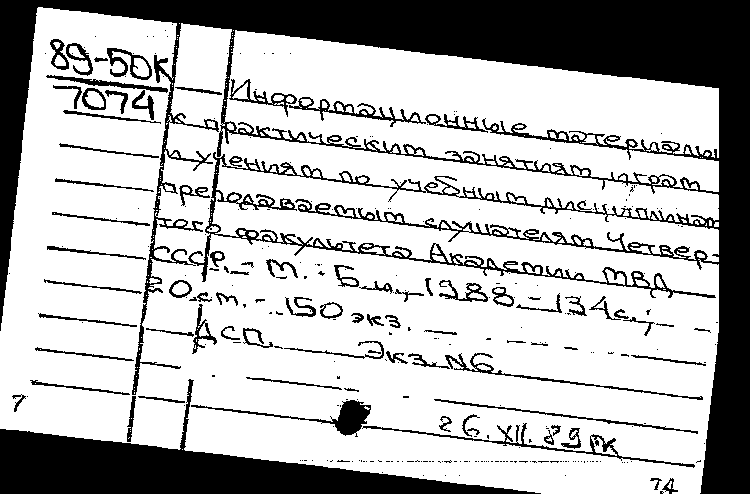 89-50К
7074
Информационные материалы
к практическим занятиям, играм
и учениям по учебным дисциплинам
преподаваемым слушателям Четвер-
того факультета Академии МВД
СССР. - М. : Б.и., 1988. - 134с.;
20 см. - 150 экз. —
ДСП. Экз. N6.
26.XII.89
7
74